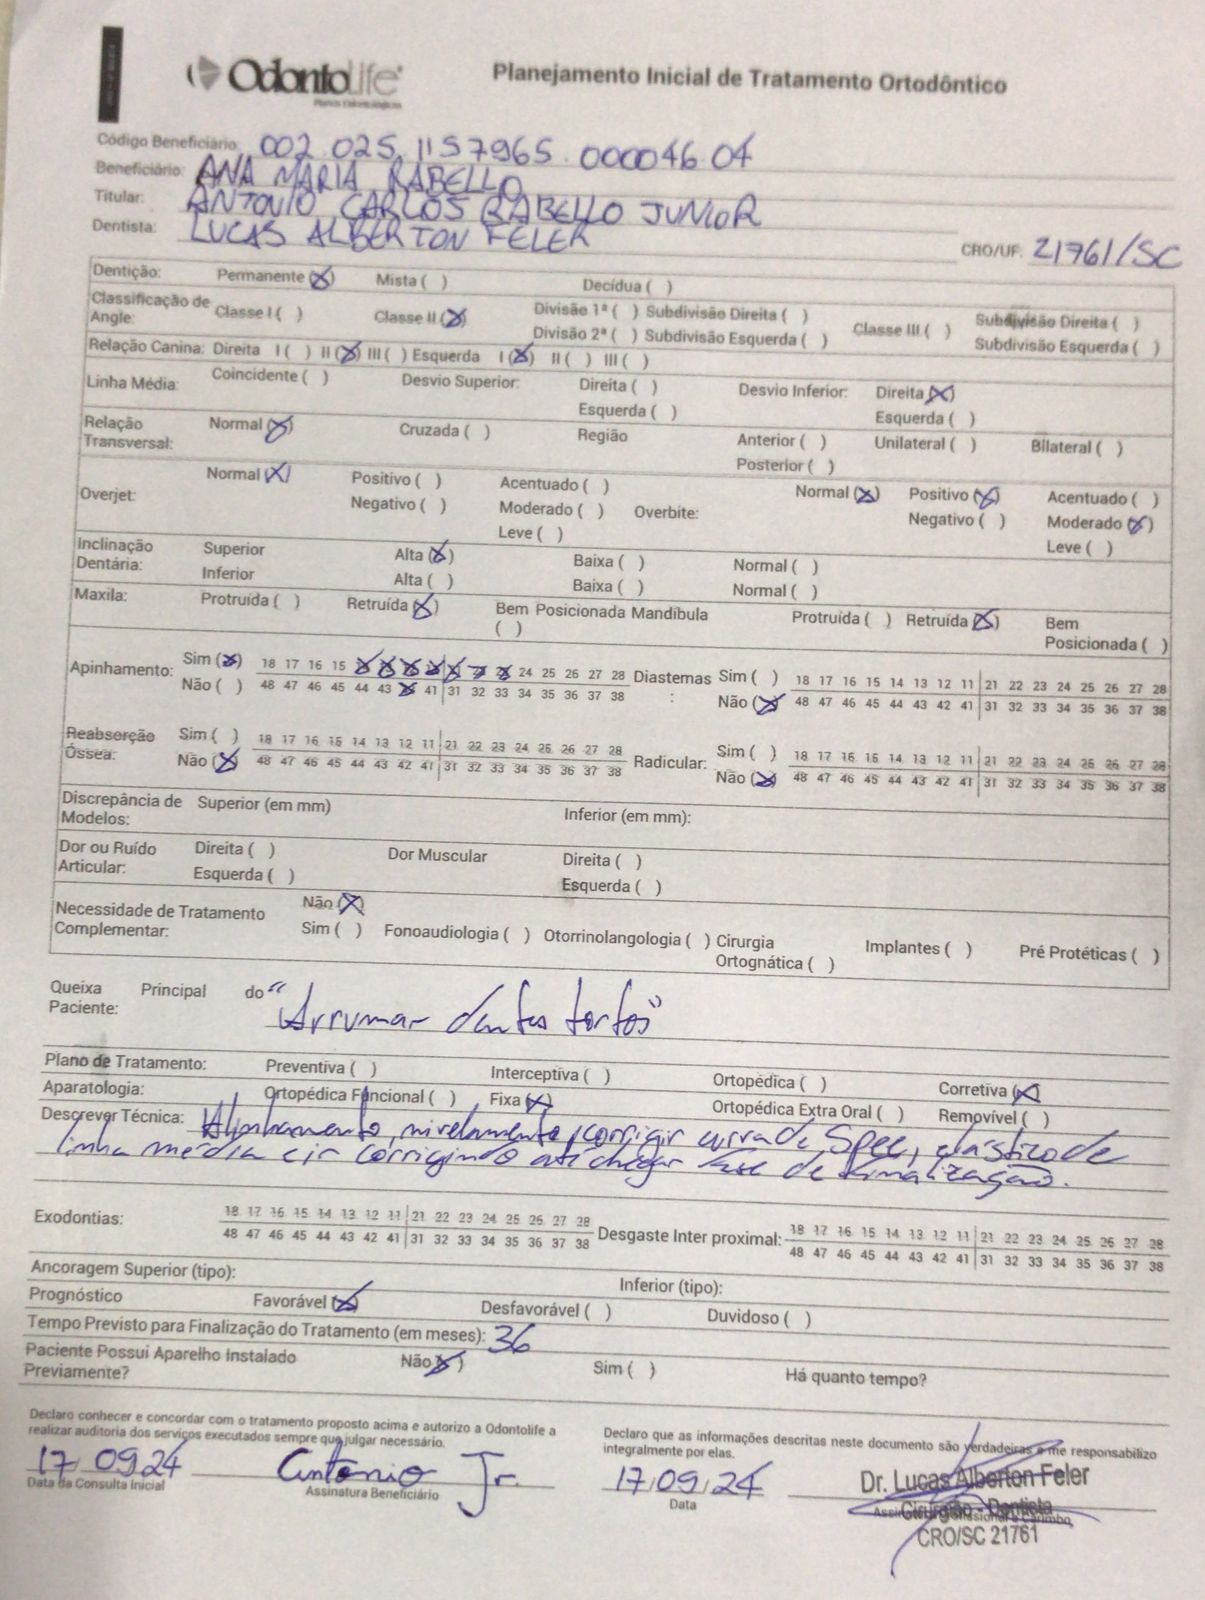 OdontoLife
Planos Odontológicos
Planejamento Inicial de Tratamento Ortodôntico
Código Beneficiário: 002.025.1157965.000046.04
Beneficiário: ANA MARIA RABELLO
Titular: ANTONIO CARLOS RABELLO JUNIOR
Dentista: LUCAS ALBERTON FELER CRO/UF: 21761/SC
Dentição: Permanente (X) Mista ( ) Decídua ( )
Classificação de Angle: Classe I ( ) Classe II (X) Divisão 1ª ( ) Subdivisão Direita ( ) Classe III ( ) Subdivisão Direita ( )
Divisão 2ª ( ) Subdivisão Esquerda ( ) Subdivisão Esquerda ( )
Relação Canina: Direita I ( ) II (X) III ( ) Esquerda I (X) II ( ) III ( )
Linha Média: Coincidente ( ) Desvio Superior: Direita ( ) Desvio Inferior: Direita (X)
Esquerda ( ) Esquerda ( )
Relação Transversal: Normal (X) Cruzada ( ) Região Anterior ( ) Unilateral ( ) Bilateral ( )
Posterior ( )
Overjet: Normal (X) Positivo ( ) Acentuado ( ) Overbite: Normal (X) Positivo (X) Acentuado ( )
Negativo ( ) Moderado ( ) Negativo ( ) Moderado (X)
Leve ( ) Leve ( )
Inclinação Dentária: Superior Alta (X) Baixa ( ) Normal ( )
Inferior Alta ( ) Baixa ( ) Normal ( )
Maxila: Protruída ( ) Retruída (X) Bem Posicionada ( ) Mandíbula Protruída ( ) Retruída (X) Bem Posicionada ( )
Apinhamento: Sim (X) 18 17 16 15 24 25 26 27 28 Diastemas : Sim ( ) 18 17 16 15 14 13 12 11 21 22 23 24 25 26 27 28
Não ( ) 48 47 46 45 44 43 41 31 32 33 34 35 36 37 38 Não (X) 48 47 46 45 44 43 42 41 31 32 33 34 35 36 37 38
Reabserção Óssea: Sim ( ) 18 17 16 15 14 13 12 11 21 22 23 24 25 26 27 28 Radicular: Sim ( ) 18 17 16 15 14 13 12 11 21 22 23 24 25 26 27 28
Não (X) 48 47 46 45 44 43 42 41 31 32 33 34 35 36 37 38 Não (X) 48 47 46 45 44 43 42 41 31 32 33 34 35 36 37 38
Discrepância de Modelos: Superior (em mm) Inferior (em mm):
Dor ou Ruído Articular: Direita ( ) Dor Muscular Direita ( )
Esquerda ( ) Esquerda ( )
Necessidade de Tratamento Complementar: Não (X)
Sim ( ) Fonoaudiologia ( ) Otorrinolangologia ( ) Cirurgia Ortognática ( ) Implantes ( ) Pré Protéticas ( )
Queixa Principal do Paciente: "Arrumar dentes tortos"
Plano de Tratamento: Preventiva ( ) Interceptiva ( ) Ortopédica ( ) Corretiva (X)
Aparatologia: Ortopédica Funcional ( ) Fixa (X) Ortopédica Extra Oral ( ) Removível ( )
Descrever Técnica: Alinhamento, nivelamento, corrigir curva de Spee, elástico de
linha média e ir corrigindo até chegar fase de finalização.
Exodontias: 18 17 16 15 14 13 12 11 21 22 23 24 25 26 27 28 Desgaste Inter proximal: 18 17 16 15 14 13 12 11 21 22 23 24 25 26 27 28
48 47 46 45 44 43 42 41 31 32 33 34 35 36 37 38 48 47 46 45 44 43 42 41 31 32 33 34 35 36 37 38
Ancoragem Superior (tipo): Inferior (tipo):
Prognóstico Favorável (X) Desfavorável ( ) Duvidoso ( )
Tempo Previsto para Finalização do Tratamento (em meses): 36
Paciente Possui Aparelho Instalado Previamente? Não (X) Sim ( ) Há quanto tempo?
Declaro conhecer e concordar com o tratamento proposto acima e autorizo a Odontolife a
realizar auditoria dos serviços executados sempre que julgar necessário.
Declaro que as informações descritas neste documento são verdadeiras e me responsabilizo
integralmente por elas.
17/09/24 Antonio Jr. 17/09/24
Data da Consulta Inicial Assinatura Beneficiário Data
Dr. Lucas Alberton Feler
Cirurgião - Dentista
CRO/SC 21761